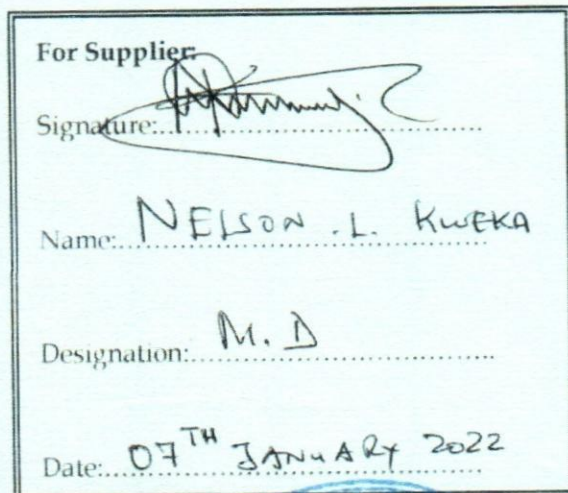 For Supplier:
Signature:
Name: NELSON .L. KWEKA
Designation: M.D
Date: 07TH JANUARY 2022